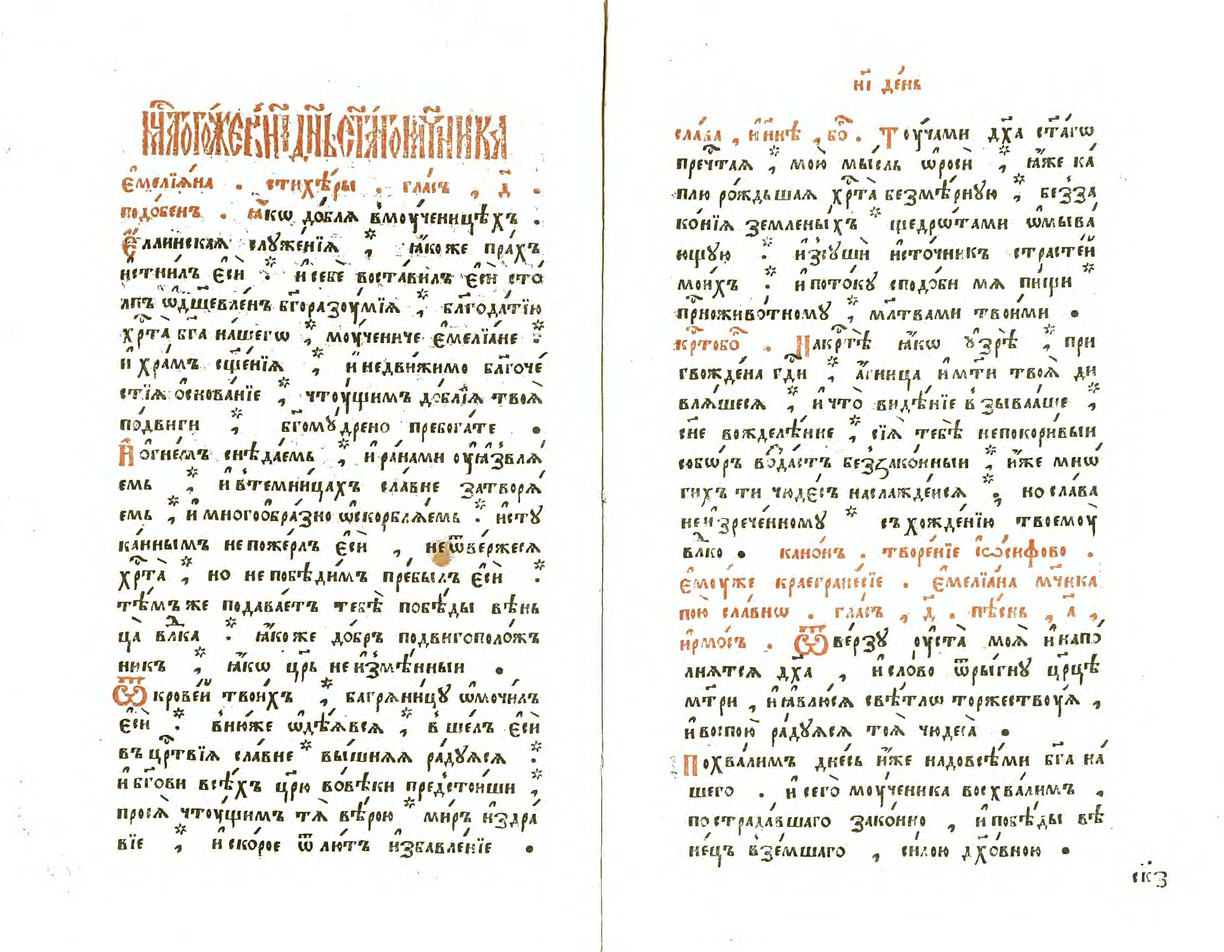 мц҃а того́же в҃ н҃і дн҃ь ст҃а́го мч҃ника
є҆мелїѧ́на . стихѣ́ры . гла́съ , д҃ .
подо́бенъ . ꙗ҆́кѡ до́блѧ вмоученицѣ́хъ .
Є҆́ллинскаѧ слꙋже́нїѧ * ꙗ҆́коже пра́хъ
и҆стни́лъ є҆сѝ * и҆ себѐ воста́вилъ є҆сѝ сто́
лпъ ѡ҆дш҃евле́нъ бг҃оразоу́мїѧ * бл҃года́тїю
хрⷭ҇та̀ бг҃а на́шегѡ * моу́чениче є҆меліѧ́не *
и҆ хра́мъ сщ҃е́нїѧ * и҆ недви́жимо бл҃гоче́
стїѧ ѡ҆снова́нїе * чтоу́щимъ до́блїѧ твоѧ̀
по́двиги * бг҃омꙋ́дрено пребога́те .
И҆ ѻ҆гне́мъ снѣда́емь * и҆ ра́нами оу҆ѧзвлѧ́
емь * и҆ втемни́цахъ сла́вне затворѧ́
емь * и҆ многоѻбра́зно ѡ҆скорблѧ́емь * и҆стꙋ
ка́ннымъ не поже́рлъ є҆сѝ , не ѿве́ржесѧ
хрⷭ҇та̀ * но непобѣди́мъ пребы́лъ є҆сѝ *
тѣ́мъже подава́етъ тебѣ̀ побѣ́ды вѣнь
ца̀ влⷣка * ꙗ҆́коже до́бръ подвигополо́жъ
никъ * ꙗ҆́кѡ цр҃ь неи҆змѣ́нныи .
Ѿ крове́й твои́хъ * багрѧни́цꙋ ѡ҆мочи́лъ
є҆сѝ * вню́же ѡ҆дѣ́ѧвсѧ * вше́лъ є҆сѝ
въ црⷭ҇твїѧ сла́вне * вы́шнѧѧ ра́дꙋѧсѧ *
и҆ бг҃ови всѣ́хъ цр҃ю вовѣ́ки предстои́ши *
просѧ̀ чтоу́щимъ тѧ̀ вѣ́рою * ми́ръ и҆здра́
вїе * и҆ ско́рое ѿ лю́тъ и҆збавле́нїе .
н҃і де́нь
сла́ва , и҆ нн҃ѣ , бо҃ . Тоу́чами дх҃а ст҃а́гѡ
пречⷭ҇таѧ * мою̀ мы́сль ѡ҆росѝ * ꙗ҆́же ка́
плю ро́ждьшаѧ хрⷭ҇та̀ безмѣ́рнꙋю * безза
ко́нїѧ земле́ныхъ * щедрѡ́тами ѡ҆мыва́
ющꙋю * и҆зсꙋшѝ и҆сто́чникъ страсте́й
мои́хъ * и҆ пото́кꙋ сподо́би мѧ пи́щи *
прⷭ҇ноживо́тномꙋ , мл҃твами твои́ми .
крⷭ҇тобо҃ . Накрⷭ҇тѣ̀ ꙗ҆́кѡ ᲂу҆зрѣ̀ * при
гвожде́на гдⷭ҇и * а҆́гница и҆ мт҃и твоѧ̀ ди
влѧ́шесѧ * и҆ что̀ видѣ́нїе взыва́аше *
сн҃е вожделѣ́нне * сїѧ̀ тебѣ̀ непокори́выи
собѡ́ръ во́здастъ беззако́нныи * и҆́же мнѡ́
гихъ ти чюде́съ наслажде́йсѧ * но сла́ва
неи҆зрече́нномꙋ * съхожде́нїю твоемоу̀
влⷣко . кано́нъ . творе́нїе і҆ѡ́сифово .
є҆моу́же краегране́сїе . є҆мелїа́на мч҃ника
пою̀ сла́внѡ . гла́съ , д҃ . пѣ́снь , а҃ ,
и҆рмо́съ . Ѿве́рзꙋ оу҆ста̀ моѧ̀ и҆ напо́
лнѧтсѧ дх҃а , и҆ сло́во ѿры́гнꙋ цр҃цѣ
мт҃ри , и҆ ꙗ҆влю́сѧ свѣ́тлѡ торжествоу́ѧ ,
и҆ воспою̀ ра́дꙋѧсѧ тоѧ̀ чюдеса̀ .
Похва́лимъ дне́сь и҆́же надовсѣ́ми бг҃а на́
шего . и҆ сего̀ моу́ченика восхва́лимъ ,
пострада́вшаго зако́нно , и҆ побѣ́ды вѣ
не́цъ взе́мшаго , си́лою дх҃о́вною .
ск҃з